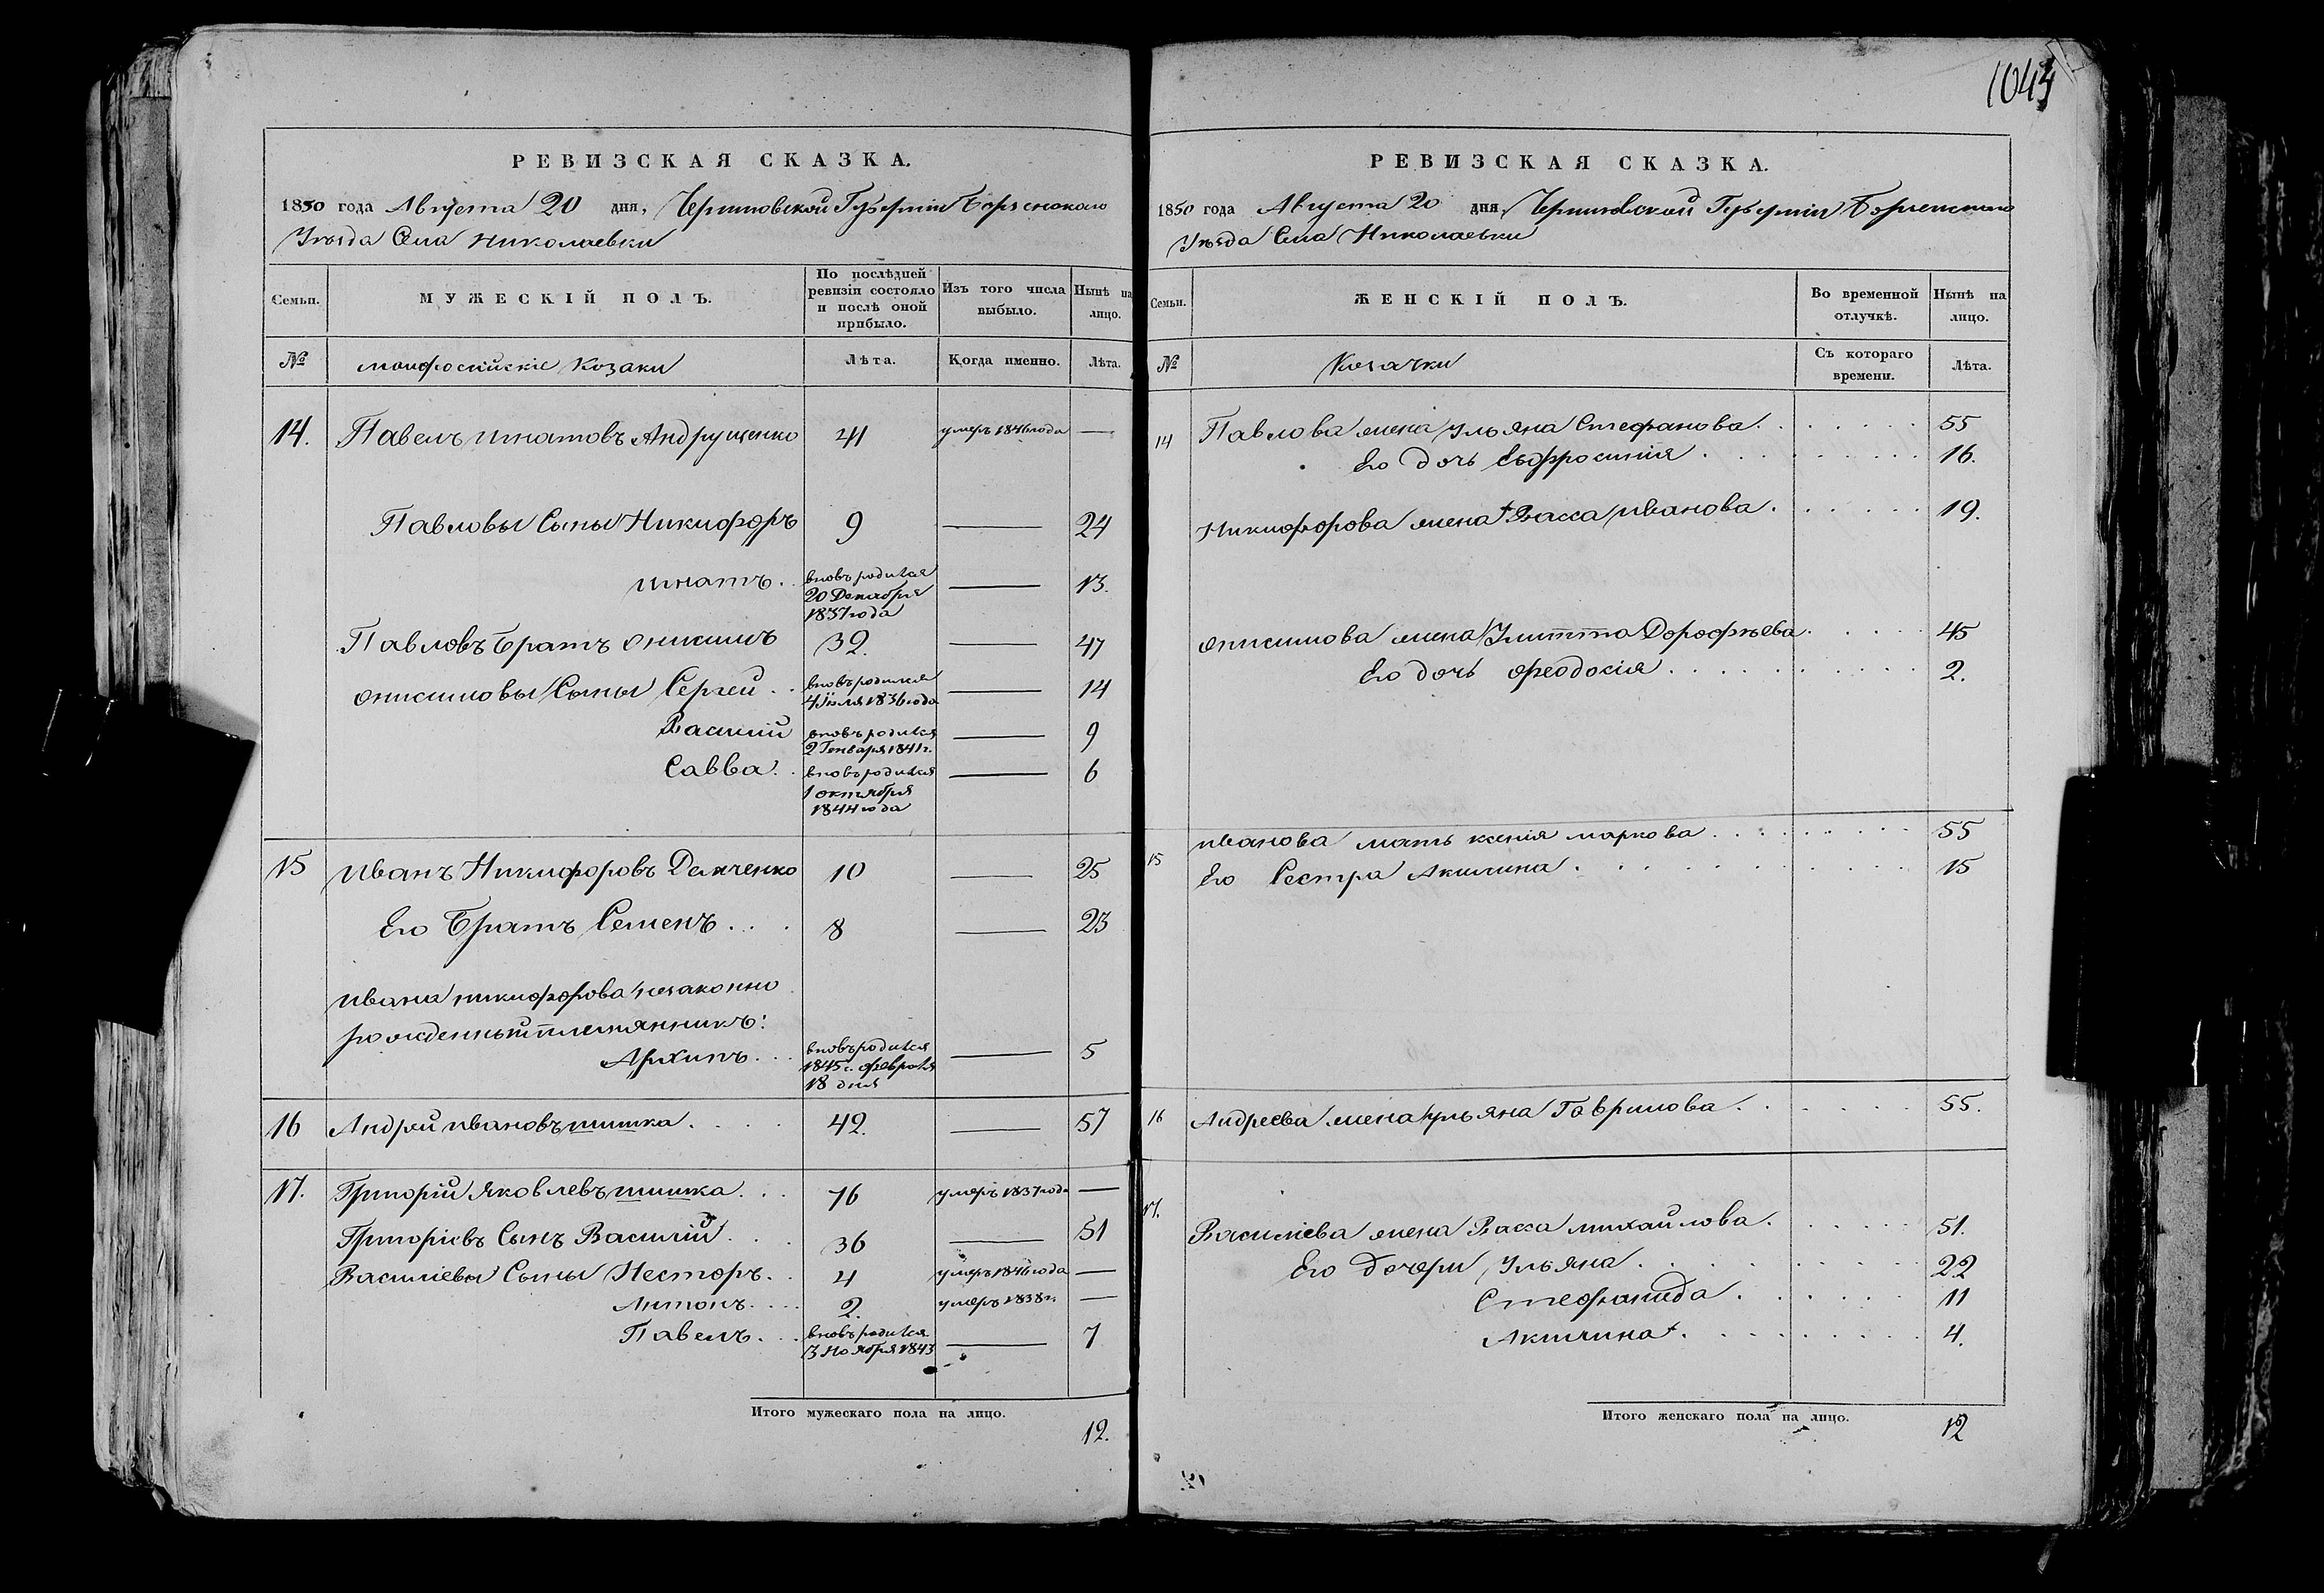 1043
РЕВИЗСКАЯ СКАЗКА.
1850 года Августа 20 дня, Черниговской Губерніи Борзенскаго
Уѣзда Села Николаевки
Семьи.
МУЖЕСКІЙ ПОЛЪ.
По послѣдней ревизіи состояло и послѣ оной прибыло.
Изъ того числа выбыло.
Нынѣ на лицо.
№ малоросійскіе Козаки Лѣта. Когда именно. Лѣта.
14. Павелъ игнатовъ Андрущенко 41 умеръ 1846 года —
Павловы Сыны Никифоръ 9 — 24
игнатъ. вновь родился 20 Декабря 1837 года — 13.
Павловъ Братъ онисимъ 32. — 47
онисимовы Сыны Сергей вновь родился 4 Іюля 1836 года — 14
Василій вновь родился 2 Генваря 1841 г. — 9
Савва. вновь родился 1 октября 1844 года — 6
15 иванъ Никифоровъ Демченко 10 — 25
Его Братъ Семенъ 8 — 23
ивана никифорова незаконно
рожденный племянникъ:
Архипъ вновь родился 1845 г. февраля 18 дня — 5
16 Андрей ивановъ шишка 42. — 57
17. Григорій яковлевъ шишка 76 умеръ 1837 года —
Григоріевъ Сынъ Василій 36 — 51
Василіевы Сыны Несторъ 4 умеръ 1846 года —
Антонъ 2. умеръ 1838 г. —
Павелъ вновь родился 3 Ноября 1843 — 7
Итого мужескаго пола на лицо.
12.
РЕВИЗСКАЯ СКАЗКА.
1850 года Августа 20 дня, Черниговской Губерніи Борзенскаго
Уѣзда Села Николаевки
Семьи.
ЖЕНСКІЙ ПОЛЪ.
Во временной отлучкѣ.
Нынѣ на лицо.
№ Козачки Съ котораго времени. Лѣта.
14 Павлова жена ульяна Стефанова 55
Его дочь Евфросинія 16.
Никифорова жена Васса иванова 19.
онисимова жена Улитта Дорофѣева 45
Его дочь феодосія 2.
15 иванова мать ксенія маркова 55
Его Сестра Акилина 15
16 Андреева жена ульяна Гаврилова 55.
17. Василіева жена Васса михайлова 51.
Его дочери Ульяна 22
Стефанида 11
Акилина 4.
Итого женскаго пола на лицо.
12